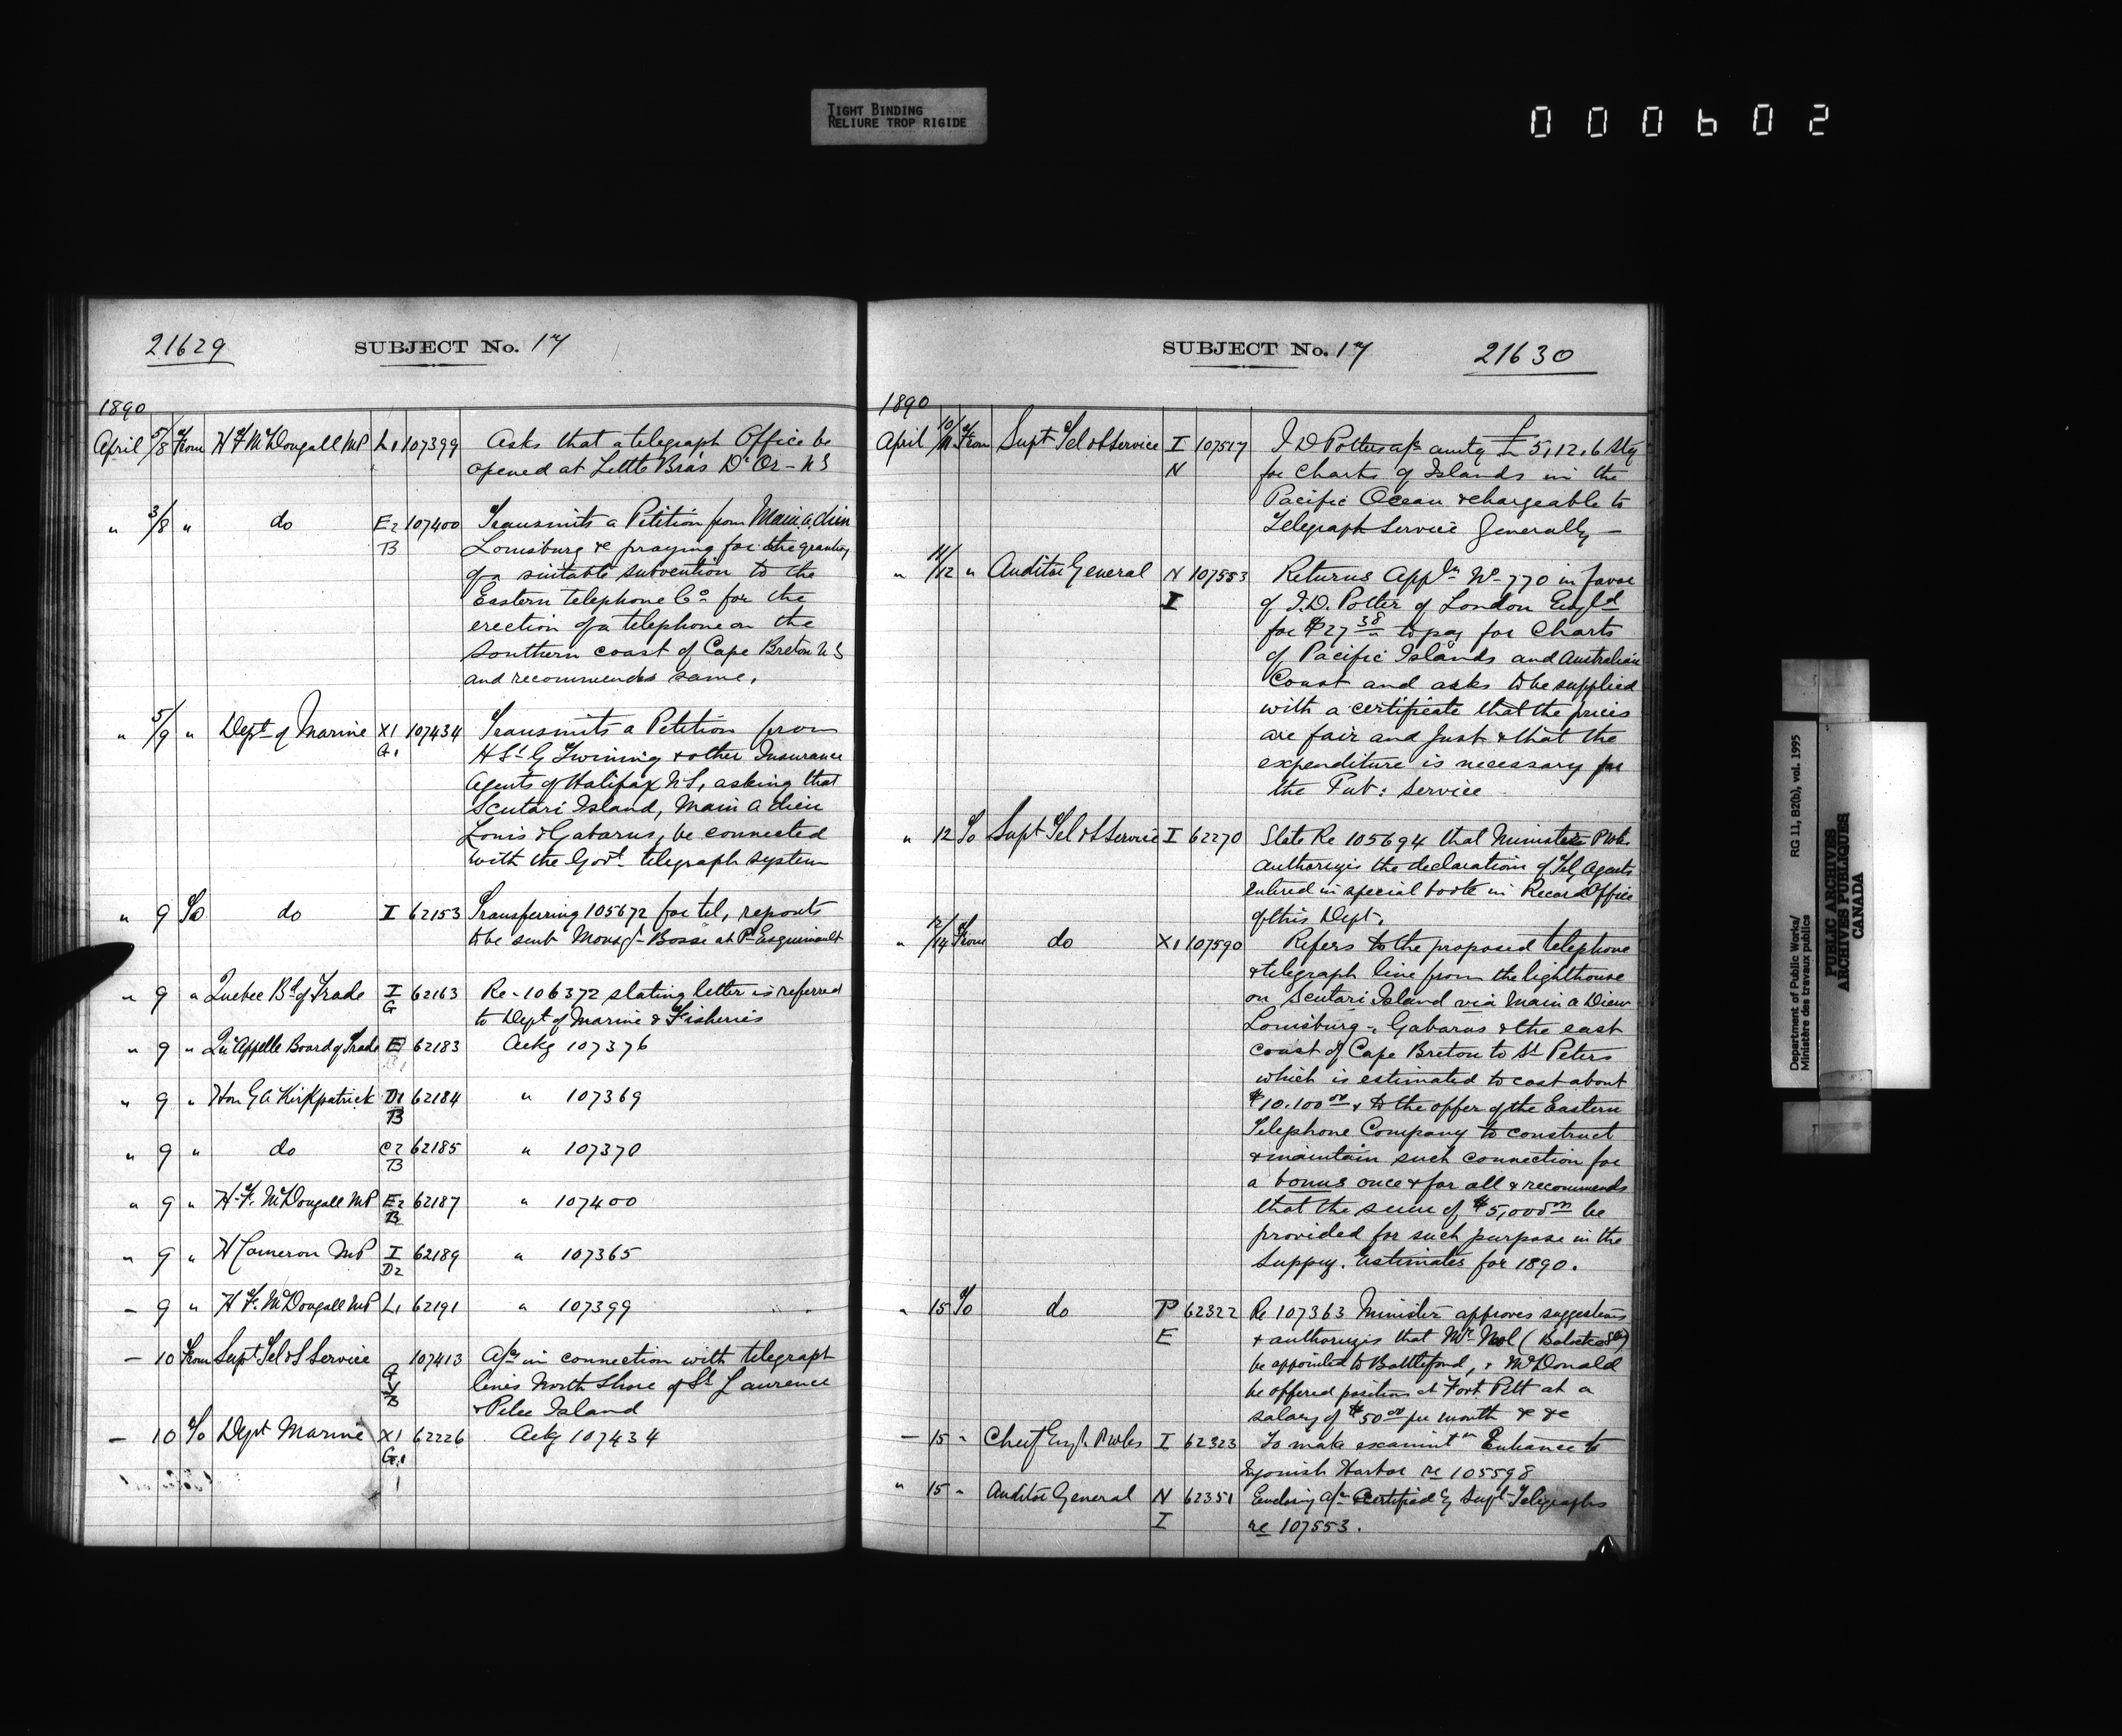 TIGHT BINDING
RELIURE TROP RIGIDE
000602
21629
SUBJECT No. 17
1890
April 5/8 From H F McDougall MP L1 107399 Asks that a telegraph Office be
opened at Little Bras D'Or - NS
" 3/8 " do E2 107400 Transmits a Petition from Main a dieu
B Louisburg &c praying for the granting
of a suitable subvention to the
Eastern telephone Co for the
erection of a telephone on the
Southern coast of Cape Breton NS
and recommends same,
" 5/9 " Dept of Marine X1 107434 Transmits a Petition from
G1 H St G Twining & other Insurance
Agents of Halifax NS, asking that
Scutari Island, Main a dieu
Louis & Gabarus, be connected
with the Govt telegraph system
" 9 To do I 62153 Transferring 105672 for tel, reports
to be sent Monsgr Bossé at Pte Esquimault
" 9 " Quebec Bd of Trade I 62163 Re - 106372 stating letter is referred
G to Dept of Marine & Fisheries
" 9 " Qu'Appelle Board of Trade E 62183 Ackg 107376
" 9 " Hon G A Kirkpatrick D1 62184 " 107369
B
" 9 " do C2 62185 " 107370
B
" 9 " H. F. McDougall MP E2 62187 " 107400
B
" 9 " H Cameron MP I 62189 " 107365
D2
- 9 " H F. McDougall MP L1 62191 " 107399
- 10 From Supt Tel & S Service 107413 A/cs in connection with telegraph
G lines North Shore of St Lawrence
B & Pelee Island
- 10 To Dept Marine X1 62226 Ackg 107434
G1
SUBJECT No. 17
21630
1890
April 10/11 From Supt Tel & S Service I 107517 J D Potters a/c amtg £5,12,6 Stg
N for Charts of Islands in the
Pacific Ocean & chargeable to
Telegraph Service Generally —
" 11/12 " Auditor General N 107553 Returns Appln No 770 in favor
I of J.D. Potter of London Engld
for $27 38 to pay for Charts
of Pacific Islands and Australian
Coast and asks to be supplied
with a certificate that the prices
are fair and just & that the
expenditure is necessary for
the Pub: Service
" 12 To Supt Tel & S Service I 62270 State Re 105694 that Minister P Wks
authorizes the declaration of Tel, Agents
entered in special book in Record Office
of this Dept,
" 12/14 From do X1 107590 Refers to the proposed telephone
& telegraph line from the lighthouse
on Scutari Island via Main a Dieu
Louisburg -, Gabarus & the east
coast of Cape Breton to St Peters
which is estimated to cost about
$10.100 00 & to the offer of the Eastern
Telephone Company to construct
& maintain such connection for
a bonus once & for all & recommends
that the sum of $5,000 00 be
provided for such purpose in the
Suppy. Estimates for 1890.
" 15 To do P 62322 Re 107363 Minister approves suggestions
E & authorizes that Mr
be appointed to Battleford, & McDonald
be offered position at Fort Pitt at a
salary of $50 00 per month & &c
— 15 " Chief Engr P Wks I 62323 To make examintn Entrance to
Ingonish Harbor re 105598
" 15 " Auditor General N 62351 Enclosing a/c certified by Supt Telegraphs
I re 107553.
Department of Public Works/
Ministère des travaux publics
RG 11, B2(b), vol. 1995
PUBLIC ARCHIVES
ARCHIVES PUBLIQUES
CANADA